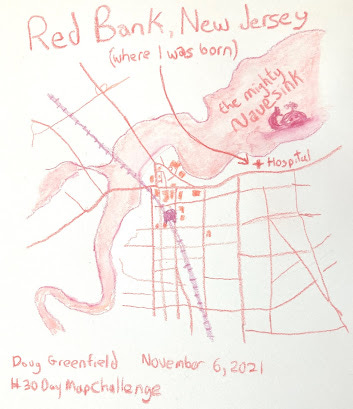 Red Bank, New Jersey
(where I was born)
the mighty
Navesink
Hospital
Doug Greenfield November 6, 2021
#30DayMapChallenge